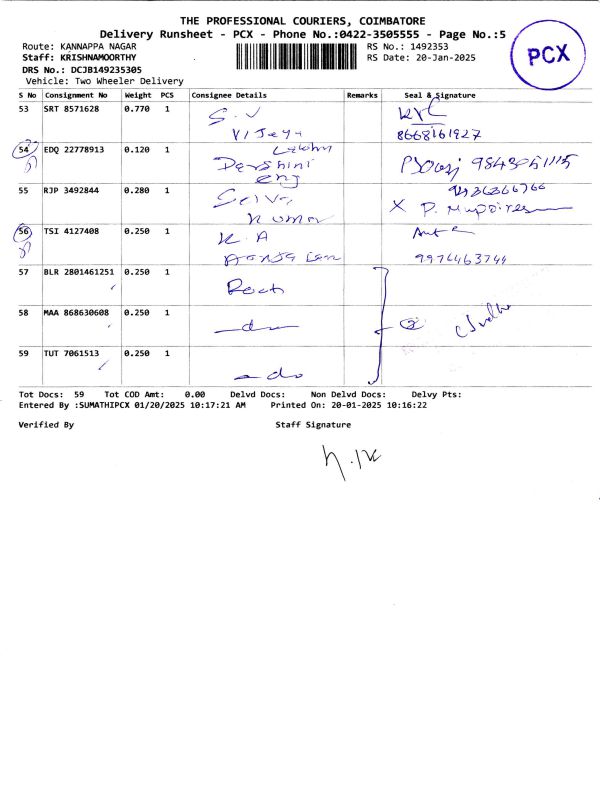 THE PROFESSIONAL COURIERS, COIMBATORE
Delivery Runsheet - PCX - Phone No.:0422-3505555 - Page No.:5
Route: KANNAPPA NAGAR RS No.: 1492353
Staff: KRISHNAMOORTHY RS Date: 20-Jan-2025
DRS No.: DCJB149235305
Vehicle: Two Wheeler Delivery
PCX
S No Consignment No Weight PCS Consignee Details Remarks Seal & Signature
53 SRT 8571628 0.770 1 S.V
Vijaya 8668161927
Lakshmi
54 EDQ 22778913 0.120 1 Darshini
eng
55 RJP 3492844 0.280 1 Selva
Kumar X P.
56 TSI 4127408 0.250 1 K.A
9976463744
57 BLR 2801461251 0.250 1
58 MAA 868630608 0.250 1 do
59 TUT 7061513 0.250 1 do
Tot Docs: 59 Tot COD Amt: 0.00 Delvd Docs: Non Delvd Docs: Delvy Pts:
Entered By :SUMATHIPCX 01/20/2025 10:17:21 AM Printed On: 20-01-2025 10:16:22
Verified By Staff Signature